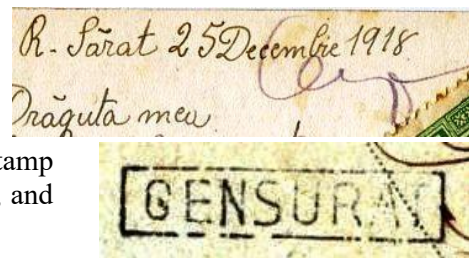 R. Sărat 25 Decembrie 1918
Drăguta mea
tamp
and
CENSURAT